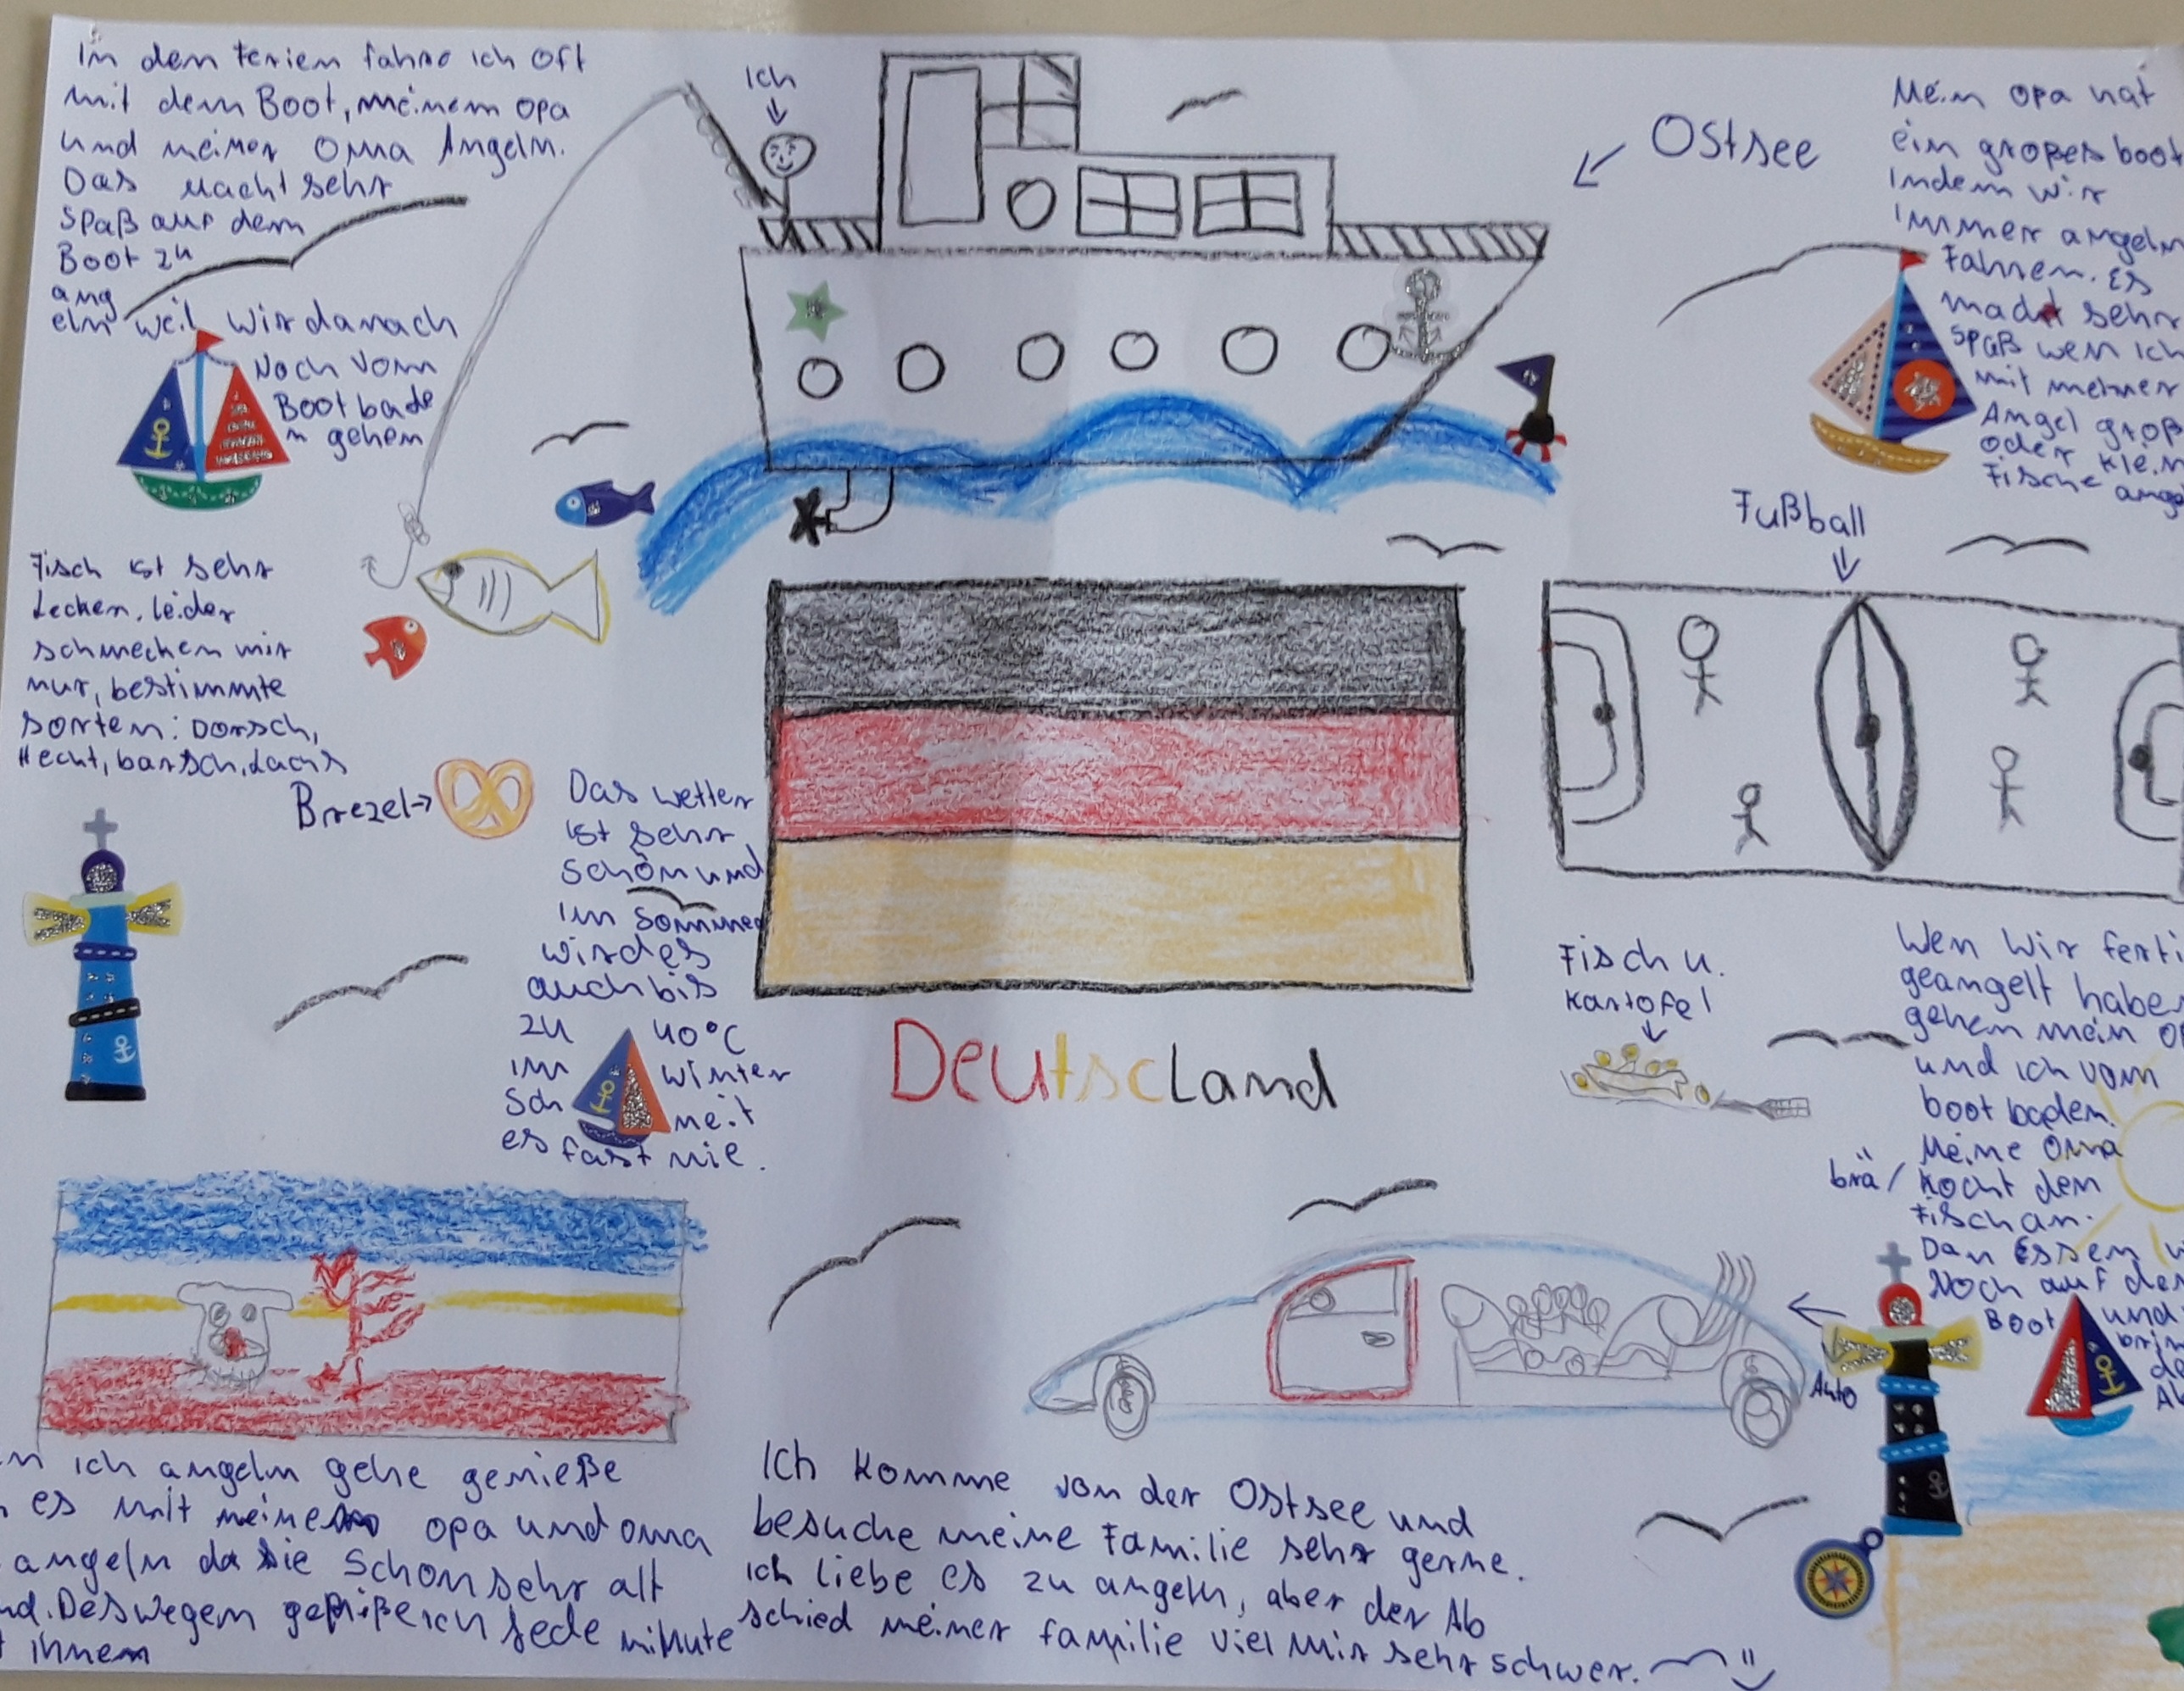 In den Ferien fahre ich oft
mit dem Boot, meinem opa
und meiner Oma Angeln.
Das Macht sehr
Spaß auf dem
Boot zu
ang
eln weil wir danach
Noch vom
Boot bade
n gehen
Ich
Ostsee
Mein opa hat
ein großes boot
indem wir
immer angeln
Fahren. Es
macht sehr
Spaß wen ich
mit meiner
Angel groß
oder klein
Fische ange
Fußball
Fisch ist sehr
Lecker. leider
schmecken mir
nur, bestimmte
sorten: Dorsch,
Hecht, barsch, Lachs
Brezel→
Das wetter
ist sehr
schön und
im Sommer
wird es
auch bis
zu 40°C
im winter
Sch neit
es fast nie.
Deutscland
Fisch u.
Kartofel
Wen wir ferti
geangelt habe
gehen mein op
und ich vom
boot baden.
Meine Oma
brä/ kocht den
Fisch an.
Dan Essen w
Noch auf de
Boot und
brin
de
Ab
Auto
n ich angeln gehe genieße
es mit meinem opa und oma
angeln da sie schon sehr alt
nd. Deswegen genieße ich jede minute
ihnen
Ich komme von der Ostsee und
besuche meine Familie sehr gerne.
ich liebe es zu angeln, aber der Ab
schied meiner familie viel mir sehr schwer.